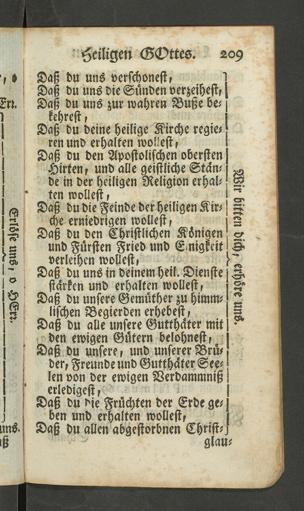 Heiligen GOttes. 209
Daß du uns verschonest,
Daß du uns die Sünden verzeihest,
Daß du uns zur wahren Buße be-
kehrest,
Daß du deine heilige Kirche regie-
ren und erhalten wollest,
Daß du den Apostolischen obersten
Hirten, und alle geistliche Stän-
de in der heiligen Religion erhal-
ten wollest,
Daß du die Feinde der heiligen Kir-
che erniedrigen wollest,
Daß du den Christlichen Königen
und Fürsten Fried und Einigkeit
verleihen wollest,
Daß du uns in deinem heil. Dienste
stärken und erhalten wollest,
Daß du unsere Gemüther zu himm-
lischen Begierden erhebest,
Daß du alle unsere Gutthäter mit
den ewigen Gütern belohnest,
Daß du unsere, und unserer Brü-
der, Freunde und Gutthäter See-
len von der ewigen Verdammniß
erledigest,
Daß du die Früchten der Erde ge-
ben und erhalten wollest,
Daß du allen abgestorbnen Christ-
glau-
Wir bitten dich, erhöre uns.
Erlöse uns, o HErr.
uns.